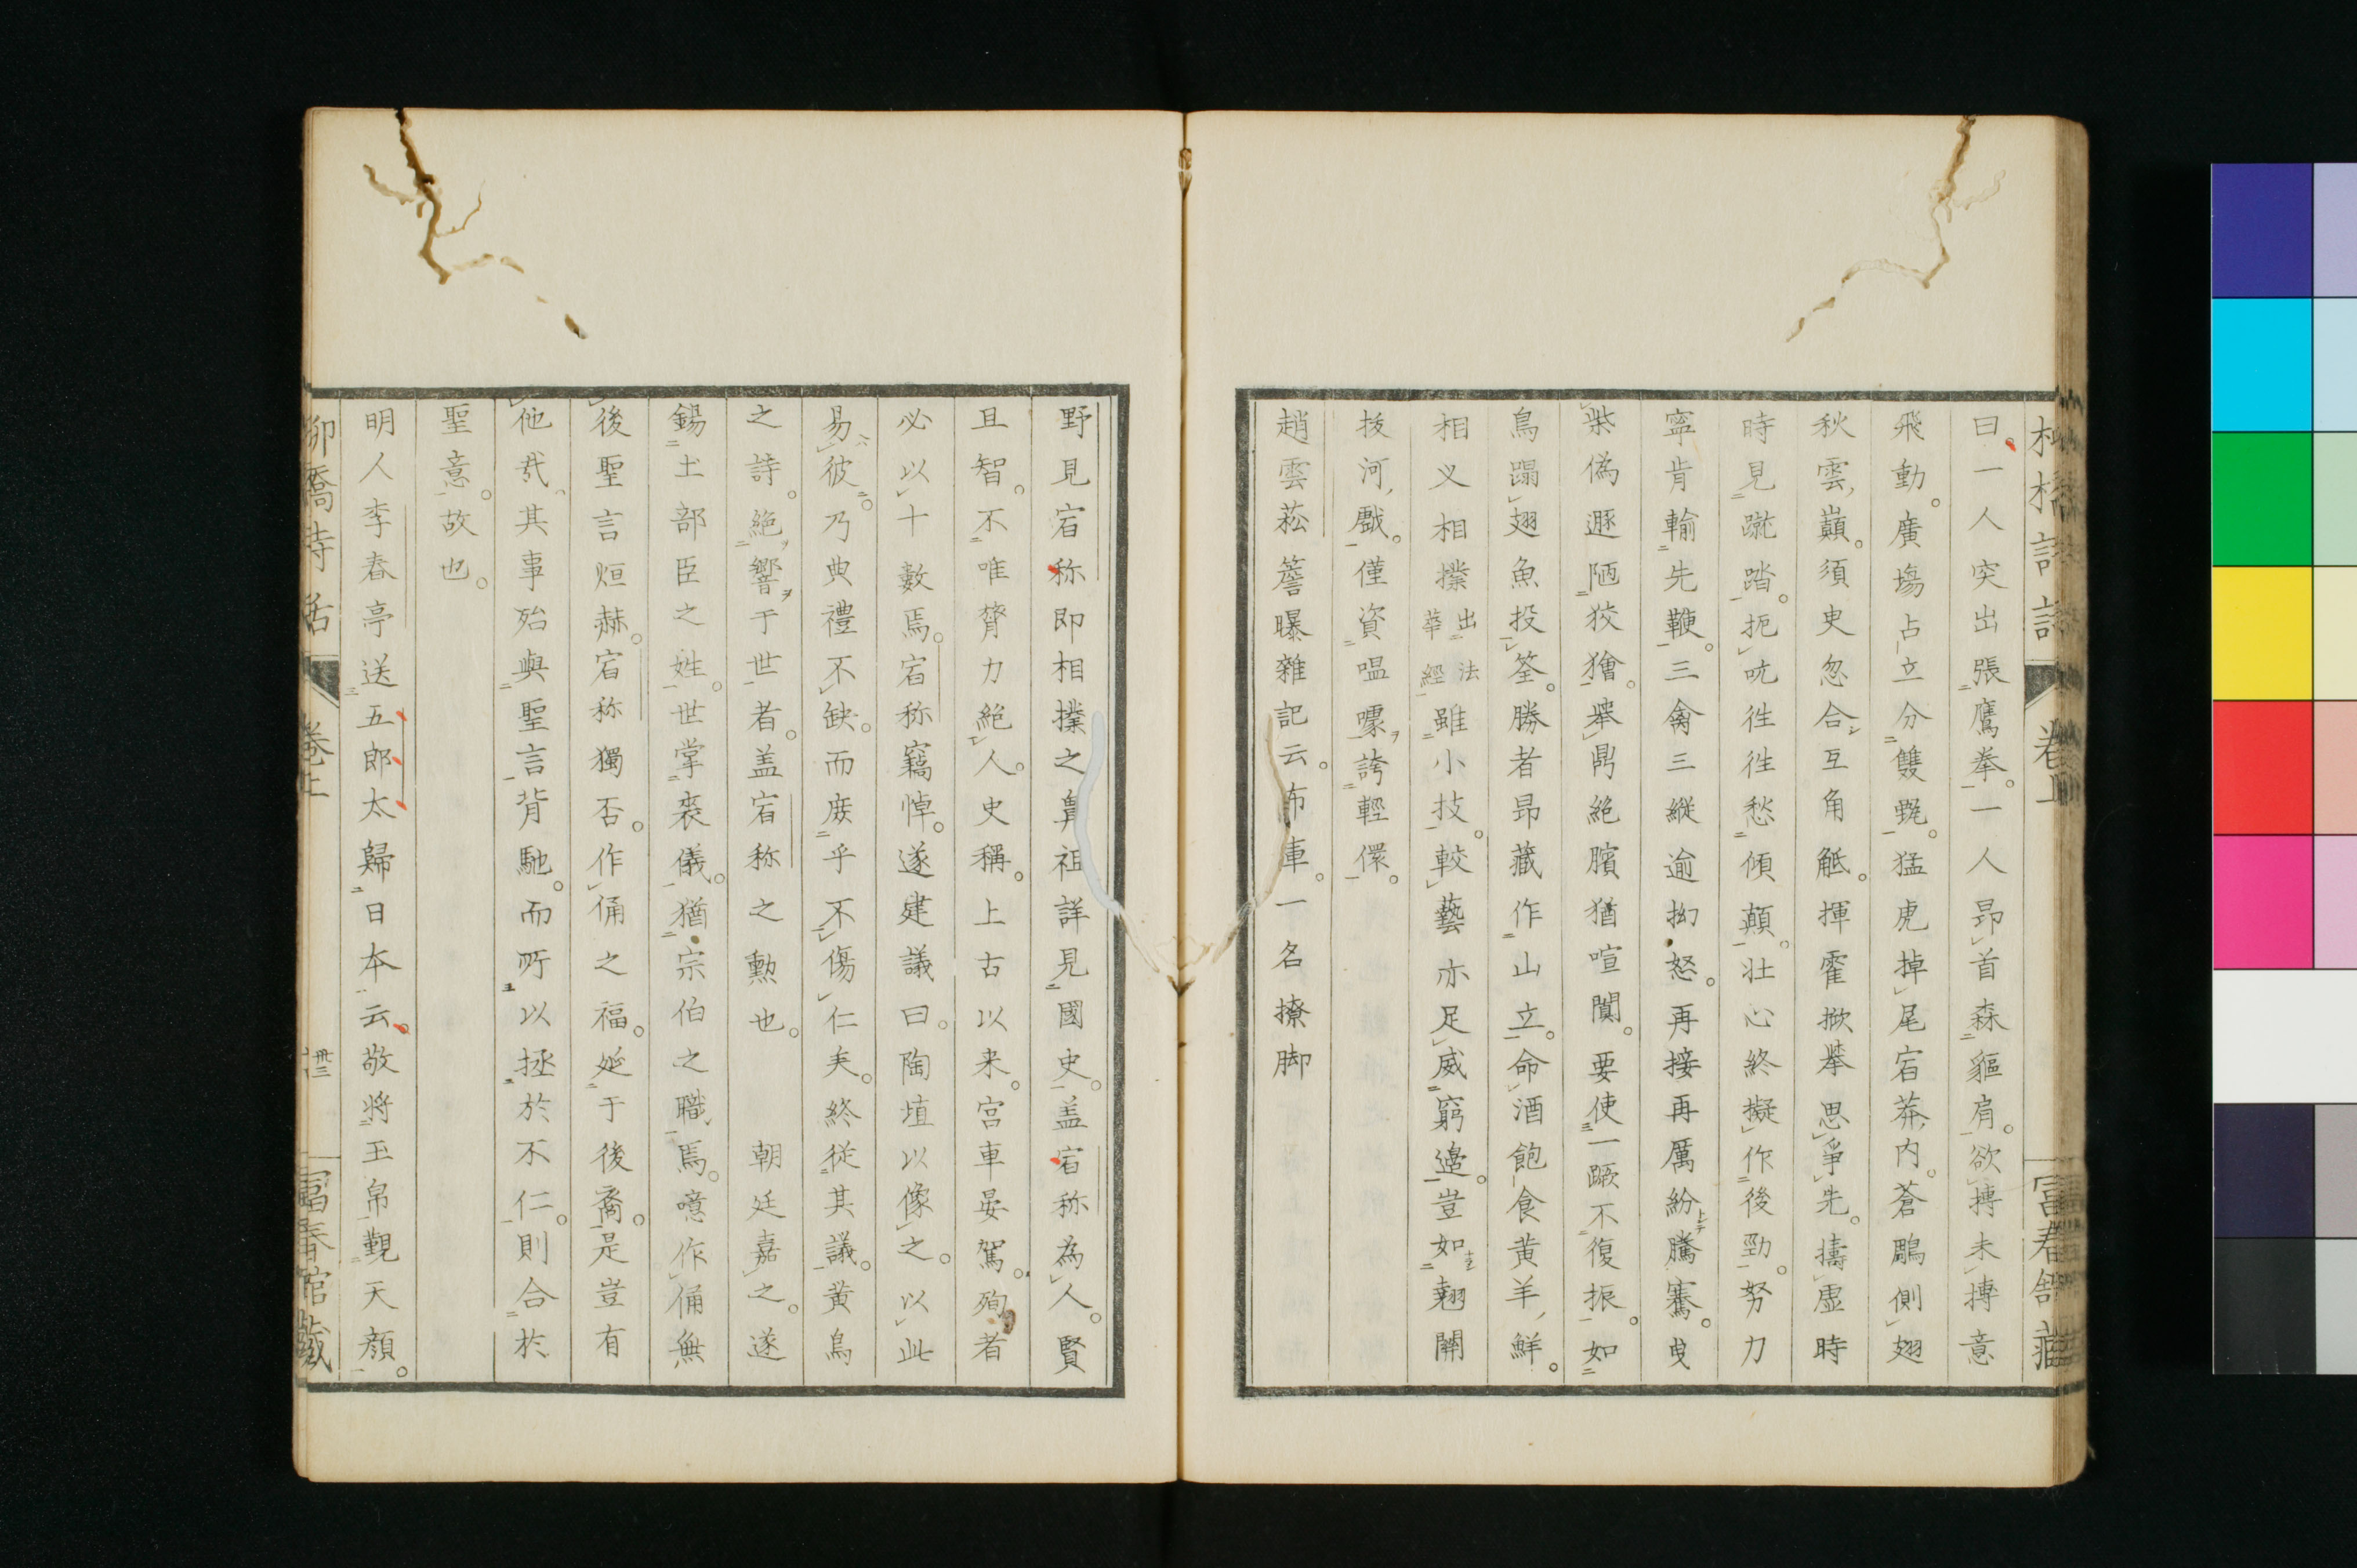 曰一人突出張鷹拳一人昂首森軀肩欲搏未搏意
飛動廣塲占立分雙甄猛虎掉尾宿莽内蒼鵰側翅
秋雲巔須臾忽合互角觝揮霍掀拳思爭先擣虛時
時見蹴踏扼吭徃徃愁傾顛壮心終擬作後勁努力
寧肯輸先鞭三禽三縱逾拗怒再接再厲紛騰騫曳
柴偽遯陋狡獪擧鼎絶臏猶喧闐要使一蹶不復振如
鳥蹋翅魚投筌勝者昂藏作山立命酒飽食黄羊鮮
相义相撲出法華經雖小技較藝亦足威窮邉豈如翹關
拔河戲僅資嗢噱誇輕儇
趙雲菘簷曝雜記云布庫一名撩脚
野見宿称即相撲之鼻祖詳見國史盖宿称為人賢
且智不唯膂力絶人史稱上古以来宫車晏駕殉者
必以十數焉宿称竊悼遂建議曰陶埴以像之以此
易彼乃典禮不缺而庶乎不傷仁矣終從其議黄鳥
之詩絶響于世者盖宿称之勲也朝廷嘉之遂
錫土部臣之姓世掌喪儀猶宗伯之職焉噫作俑無
後聖言烜赫宿称獨否作俑之福延于後裔是豈有
他㢤其事殆與聖言背馳而所以拯於不仁則合於
聖意故也
明人李春亭送五郎太歸日本云敬將玉帛覲天顔
柳橋詩話 卷上 卅三 富春館藏